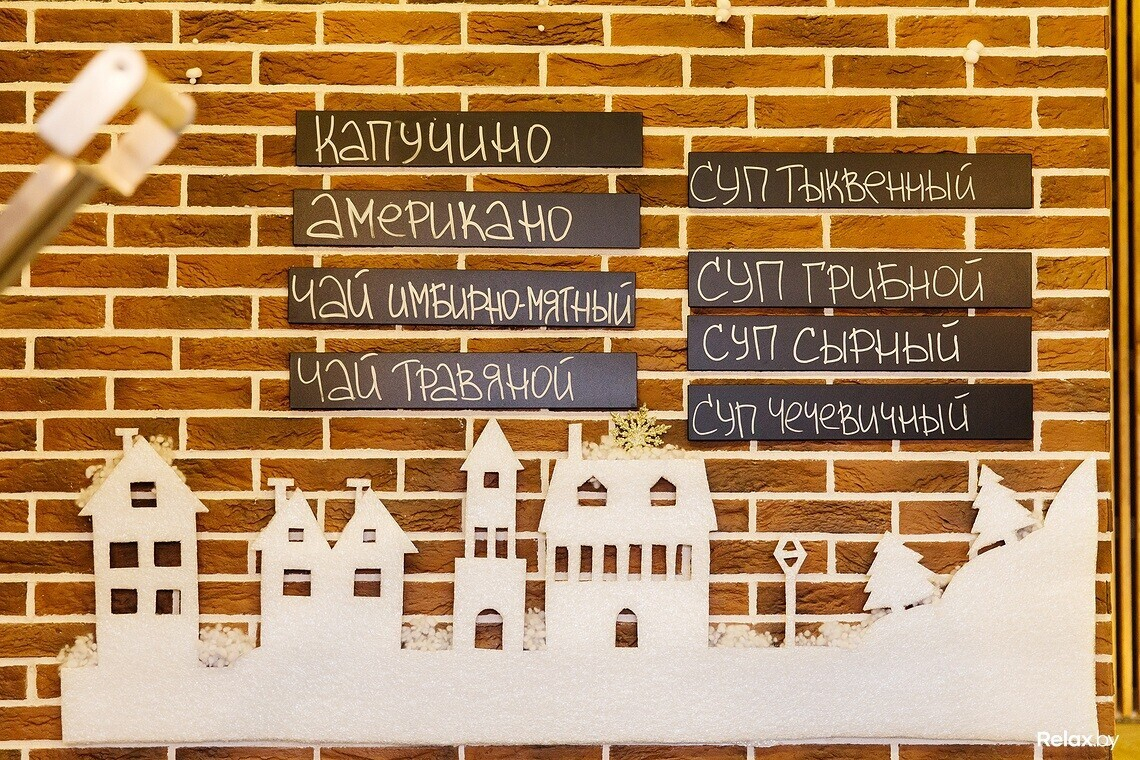 Капучино
Американо
Чай имбирно-мятный
Чай травяной
Суп тыквенный
Суп грибной
Суп сырный
Суп чечевичный
Relax.by